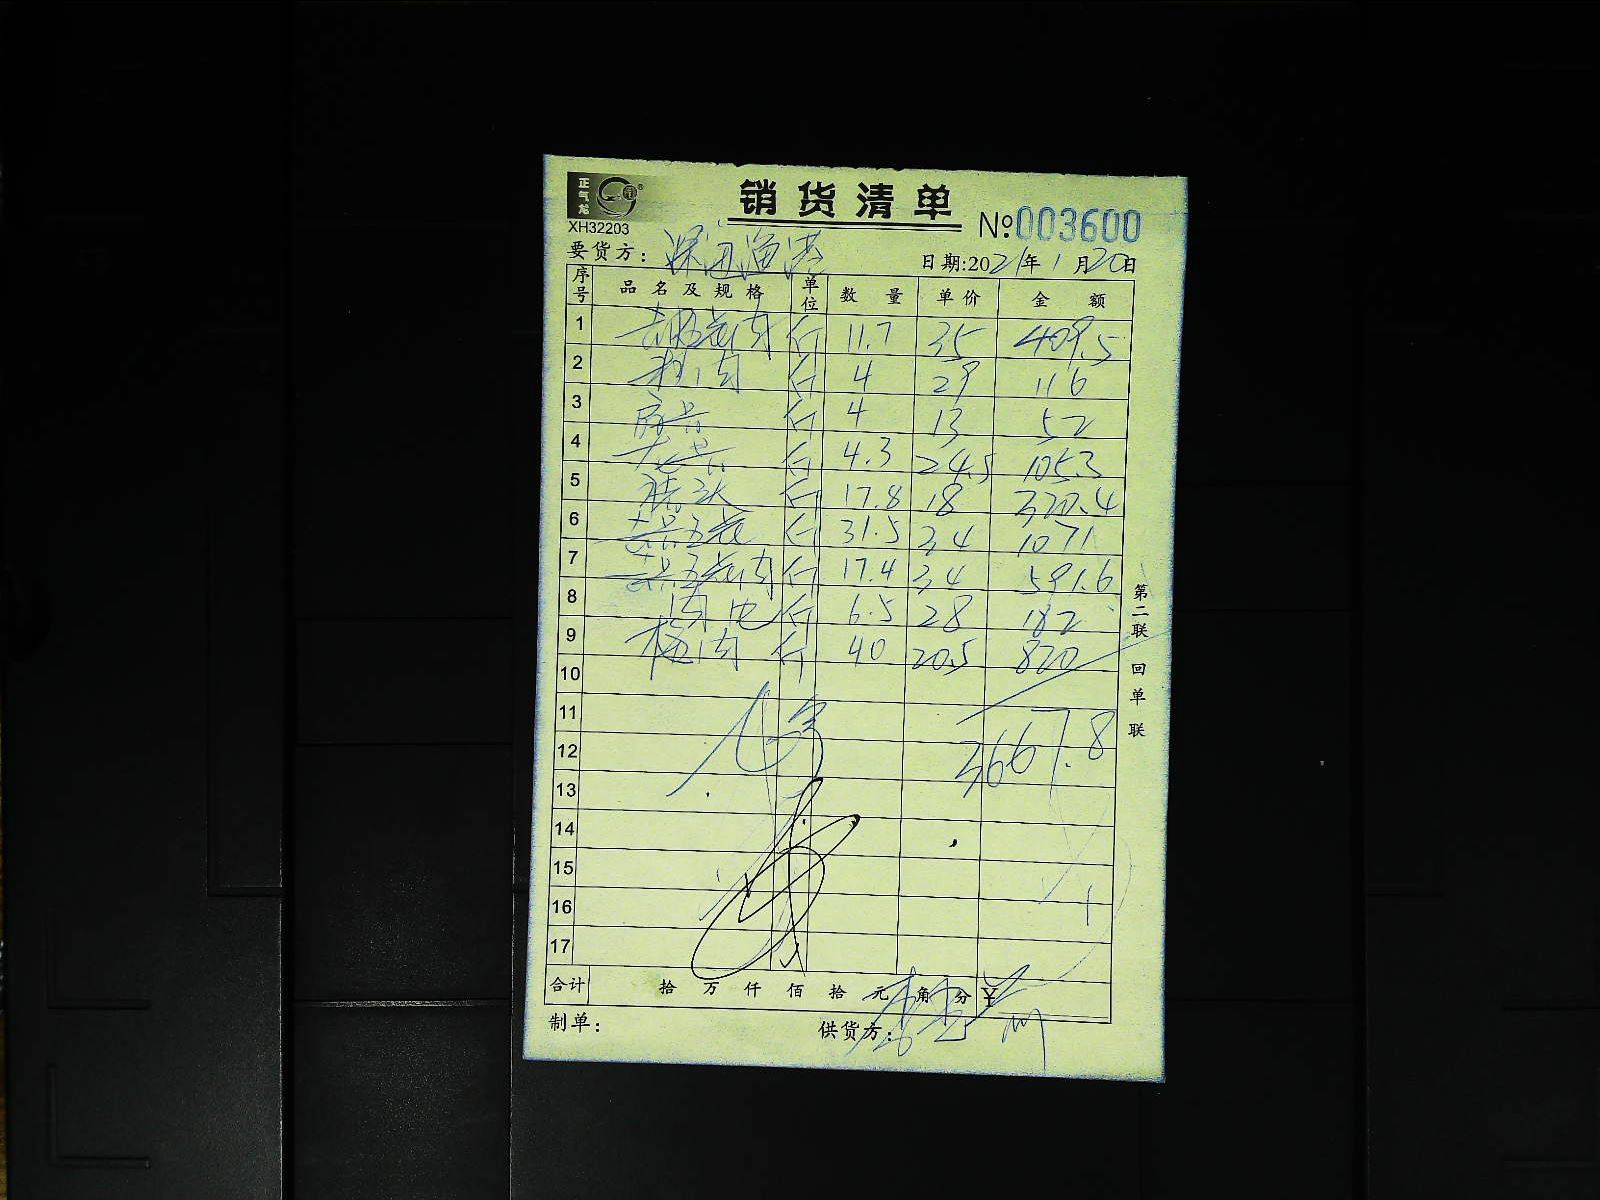 正气龙
销货清单
XH32203
№003600
要货方:
日期:2021年1月20日
序号 品名及规格 单位 数量 单价 金额
1 五花肉 斤 11.7 35 409.5
2 肉 斤 4 29 116
3 斤 4 13 52
4 斤 4.3 24.5 105.3
5 斤 17.8 18 320.4
6 五花 斤 31.5 34 1071
7 五花肉 斤 17.4 34 591.6
8 肉 斤 6.5 28 182
9 梅肉 斤 40 20.5 820
10
11
12 3667.8
13
14
15
16
17
合计 拾 万 仟 佰 拾 元 角 分 ¥
制单: 供货方:
第二联 回单联